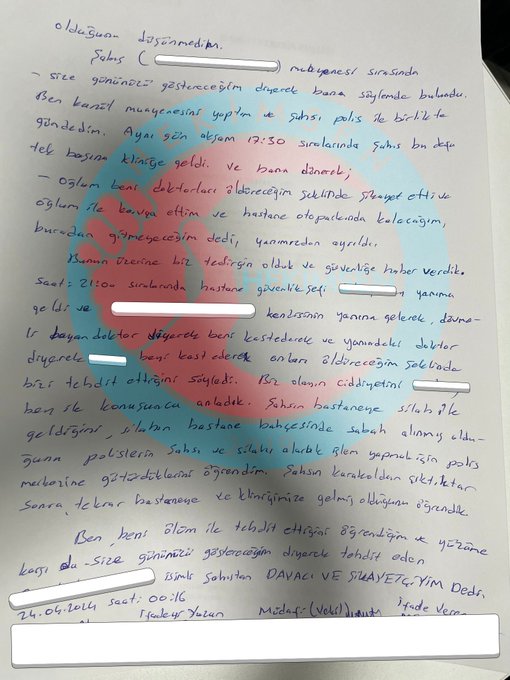 olduğunu düşünmedim.
Şahıs ( ) muayenesi sırasında
- size gününüzü göstereceğim diyerek bana söylemde bulundu.
Ben muayenesini yaptım ve şahsı polis ile birlikte
gönderdim. Aynı gün akşam 17:30 sıralarında şahıs bu defa
tek başına kliniğe geldi. ve bana dönerek;
- oğlum beni doktorları öldüreceğim şeklinde şikayet etti ve
oğlum ile kavga ettim ve hastane otoparkında kalacağım,
buradan gitmeyeceğim dedi, yanımızdan ayrıldı.
Bunun üzerine biz tedirgin olduk ve güvenliğe haber verdik.
Saat: 21:00 sıralarında hastane güvenlik şefi yanıma
geldi ve kendisinin yanına gelerek,
bayan doktor diyerek beni kastederek ve yanındaki doktor
diyerek beni kast ederek onları öldüreceğim şeklinde
bizi tehdit ettiğini söyledi. Biz olayın ciddiyetini
ben ile konuşunca anladık. Şahsın hastaneye silah ile
geldiğini, silahın hastane bahçesinde sabah alınmış oldu-
ğunu polislerin şahsı ve silahı alarak işlem yapmak için polis
merkezine götürdüklerini öğrendim. Şahsın karakoldan çıktıktan
sonra tekrar hastaneye ve kliniğimize gelmiş olduğunu öğrendik.
Ben beni ölüm ile tehdit ettiğini öğrendiğim ve yüzüme
karşı da - size gününüzü göstereceğim diyerek tehdit eden
isimli şahıstan DAVACI VE ŞİKAYETÇİYİM Dedi.
24.04.2024 saat: 00:16
İfadeyi Yazan Müdafi (Vekil) İfade Veren